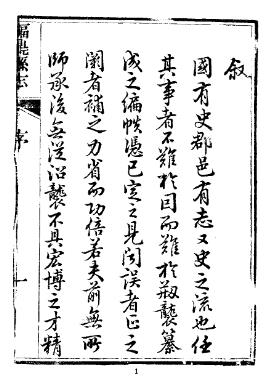 叙
國有史郡邑有志又史之流也任
其事者不難於因而難於刱襲纂
成之編帙憑已定之見聞誤者正之
闕者補之力省而功倍若夫前無所
師承後無從沿襲不具宏博之才精
福鼎縣志
序
一
1